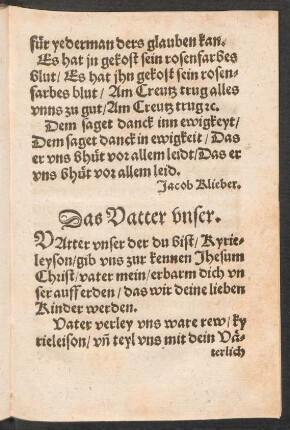 für yederman ders glauben kan.
Es hat jn gekost sein rosenfarbes
blut / Es hat jhn gekost sein rosen-
farbes blut / Am Creutz trug alles
vnns zu gut / Am Creutz trug ꝛc.
Dem saget danck inn ewigkeyt /
Dem saget danck in ewigkeit / Das
er vns bhüt vor allem leidt / Das er
vns bhüt vor allem leid.
Jacob Klieber.
Das Vatter vnser.
VAtter vnser der du bist / Kyrie-
leyson / gib vns zur kennen Jhesum
Christ / vater mein / erbarm dich vn
ser auff erden / das wir deine lieben
Kinder werden.
Vater verley vns ware rew / ky
rieleison / vñ teyl vns mit dein Vä-
terlich